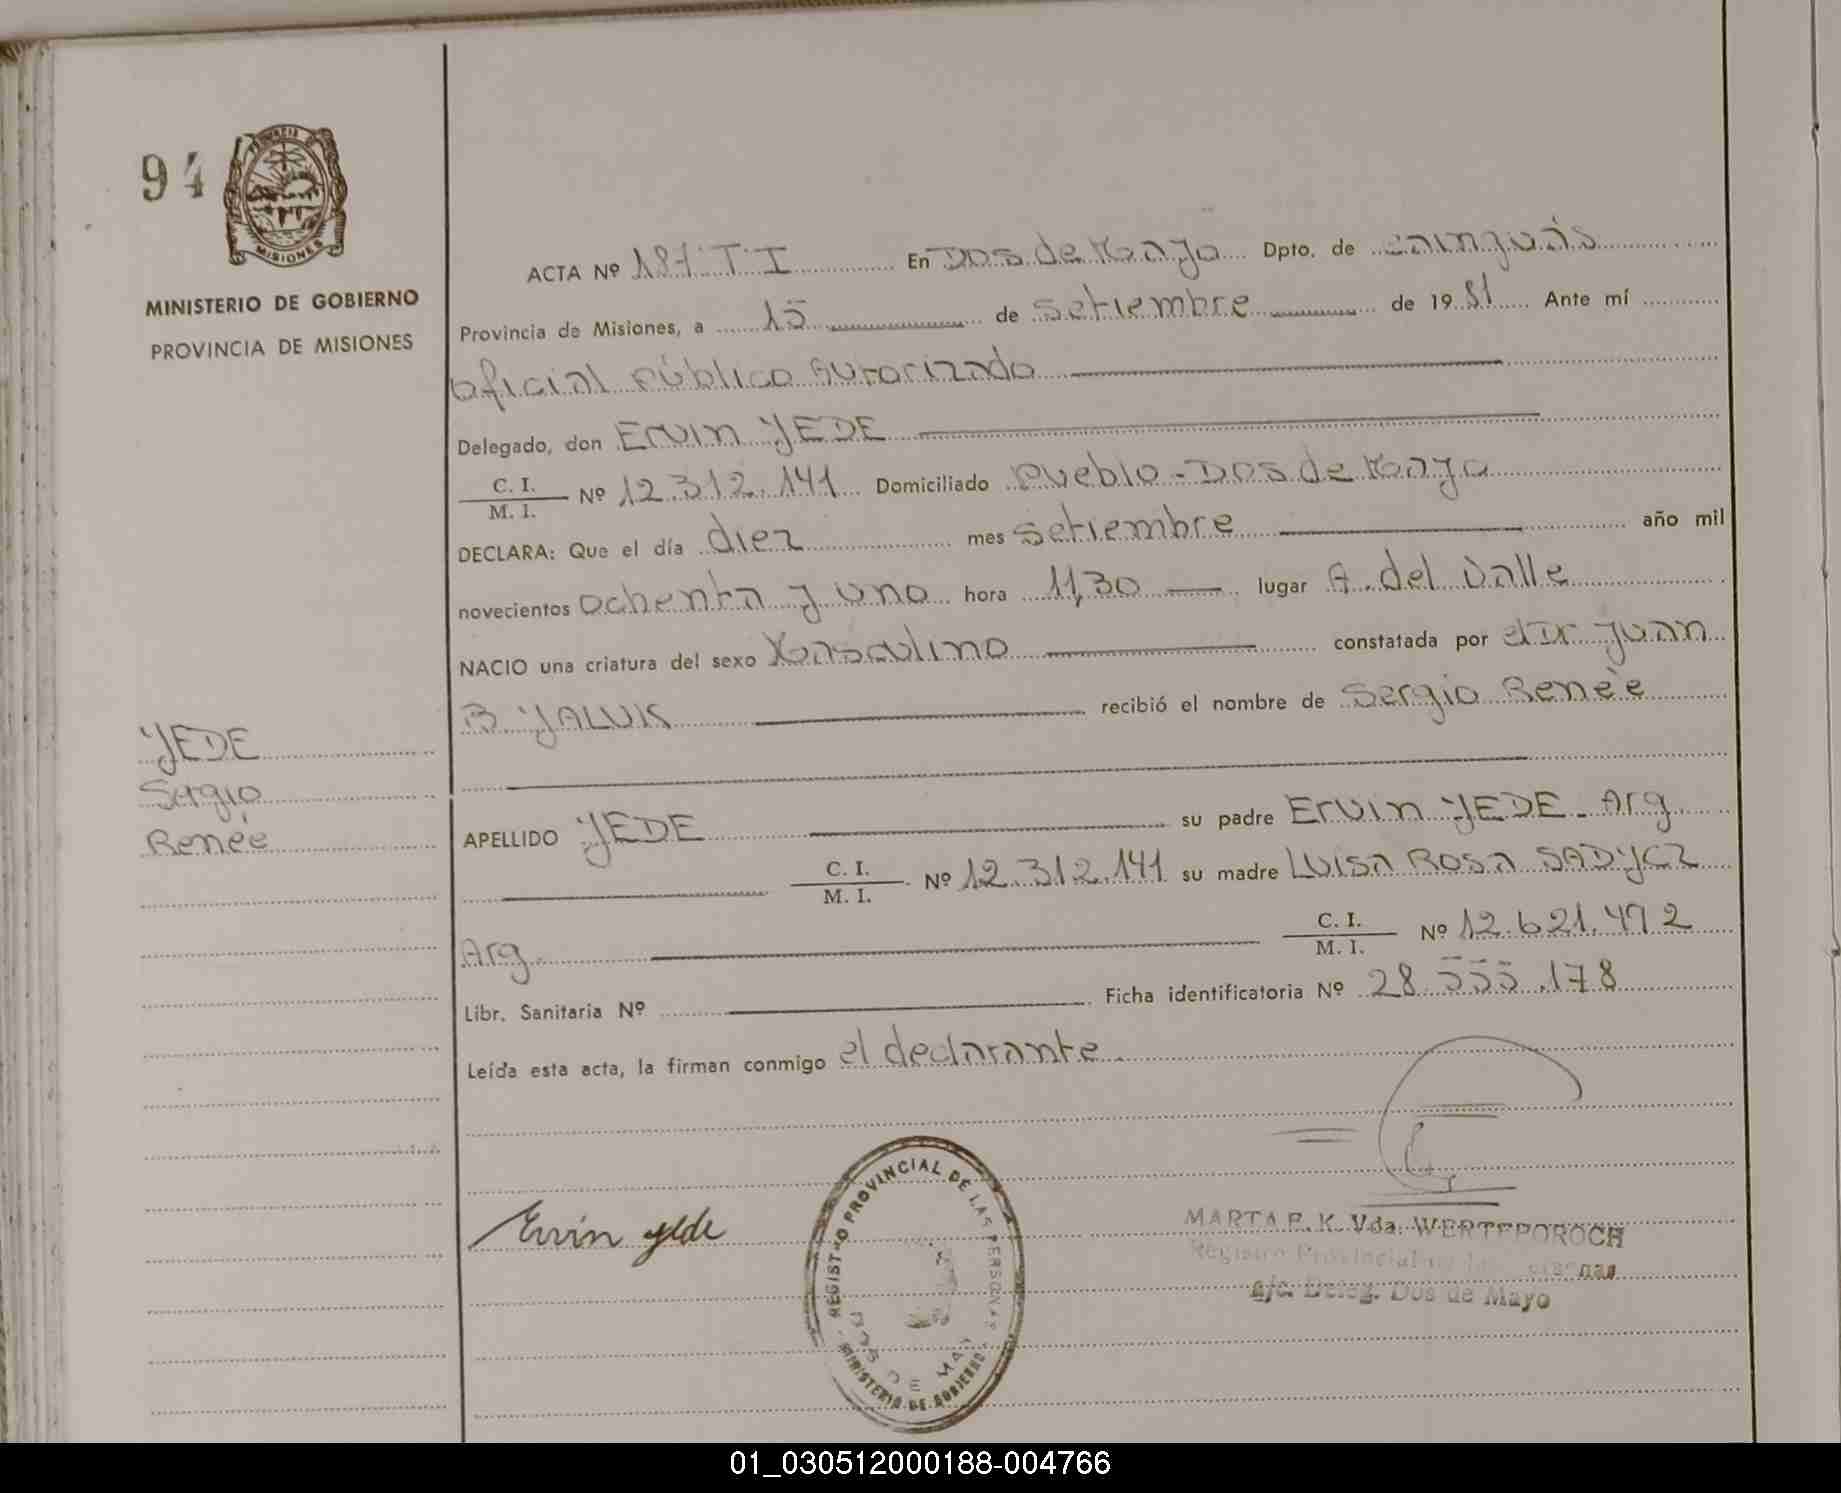 94
PROVINCIA
MISIONES
MINISTERIO DE GOBIERNO
PROVINCIA DE MISIONES
ACTA Nº 187 T I En Dos de Mayo Dpto. de Cainguás
Provincia de Misiones, a 15 de Setiembre de 1981 Ante mí
Oficial Público Autorizado
Delegado, don Ervin YEDE
C. I.
M. I. Nº 12.312.141 Domiciliado Pueblo - Dos de Mayo
DECLARA: Que el día diez mes Setiembre año mil
novecientos ochenta y uno hora 11,30 lugar A. del Valle
NACIO una criatura del sexo Masculino constatada por el Dr Juan
B YALUK recibió el nombre de Sergio Renée
YEDE
Sergio
Renée
APELLIDO YEDE su padre Ervin YEDE - Arg
C. I.
M. I. Nº 12.312.141 su madre LUISA ROSA SADYCZ
Arg. C. I.
M. I. Nº 12.621.472
Libr. Sanitaria Nº Ficha identificatoria Nº 28.555.178
Leída esta acta, la firman conmigo el declarante.
Ervin Yede
REGISTRO PROVINCIAL DE LAS PERSONAS
DOS DE MAYO
MINISTERIO DE GOBIERNO
MARTA E. K. Vda. WERTEPOROCH
Registro Provincial
a/c. Deleg. Dos de Mayo
01_030512000188-004766